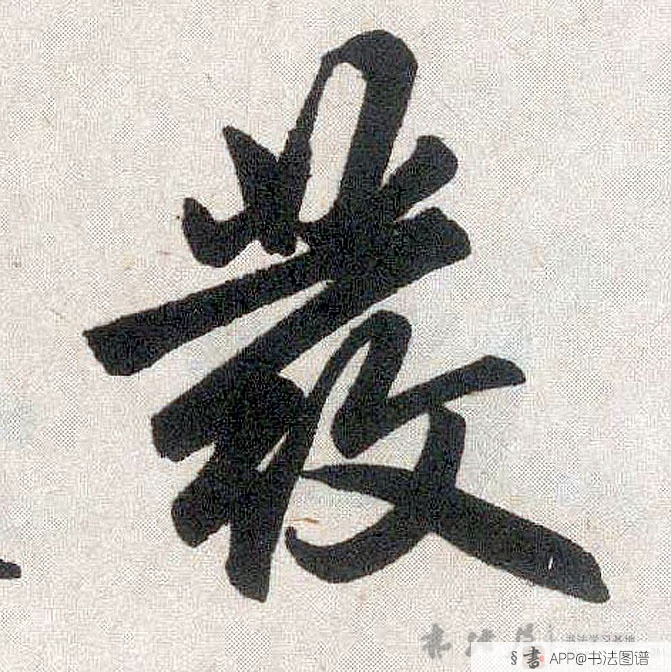 發
书法学习基地
§書 APP@书法图谱